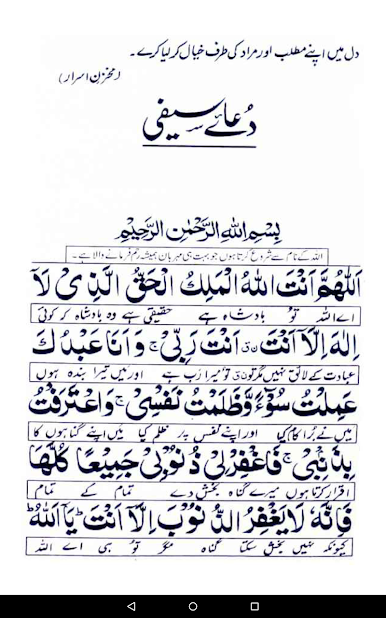 دل میں اپنے مطلب اور مراد کی طرف خیال کر لیا کرے۔
(مخزن اسرار)
دُعائے سیفی
بِسْمِ اللهِ الرَّحْمٰنِ الرَّحِيْمِ
اللہ کے نام سے شروع کرتا ہوں جو بہت ہی مہربان ہمیشہ رحم فرمانے والا ہے۔
اَللّٰهُمَّ اَنْتَ اللهُ الْمَلِكُ الْحَقُّ الَّذِیْ لَآ
اے اللہ تُو بادشاہ ہے حقیقی ہے وہ بادشاہ کہ کوئی
اِلٰهَ اِلَّآ اَنْتَ اَنْتَ رَبِّیْ ج وَاَنَا عَبْدُكَ
عبادت کے لائق نہیں مگر تو تُو میرا رب ہے اور میں تیرا بندہ ہوں
عَمِلْتُ سُوْٓءًا وَّظَلَمْتُ نَفْسِیْ ج وَاعْتَرَفْتُ
میں نے بُرا کام کیا اور اپنے نفس پر ظلم کیا میں اپنے گناہوں کا
بِذَنْۢبِیْ ج فَاغْفِرْلِیْ ذُنُوْبِیْ جَمِيْعًا كُلَّهَا
اقرار کرتا ہوں میرے گناہ بخش دے تمام کے تمام
فَاِنَّهٗ لَا يَغْفِرُ الذُّنُوْبَ اِلَّآ اَنْتَ ط يَآ اَللهُ ط
کیونکہ نہیں بخش سکتا گناہ مگر تُو ہی اے اللہ